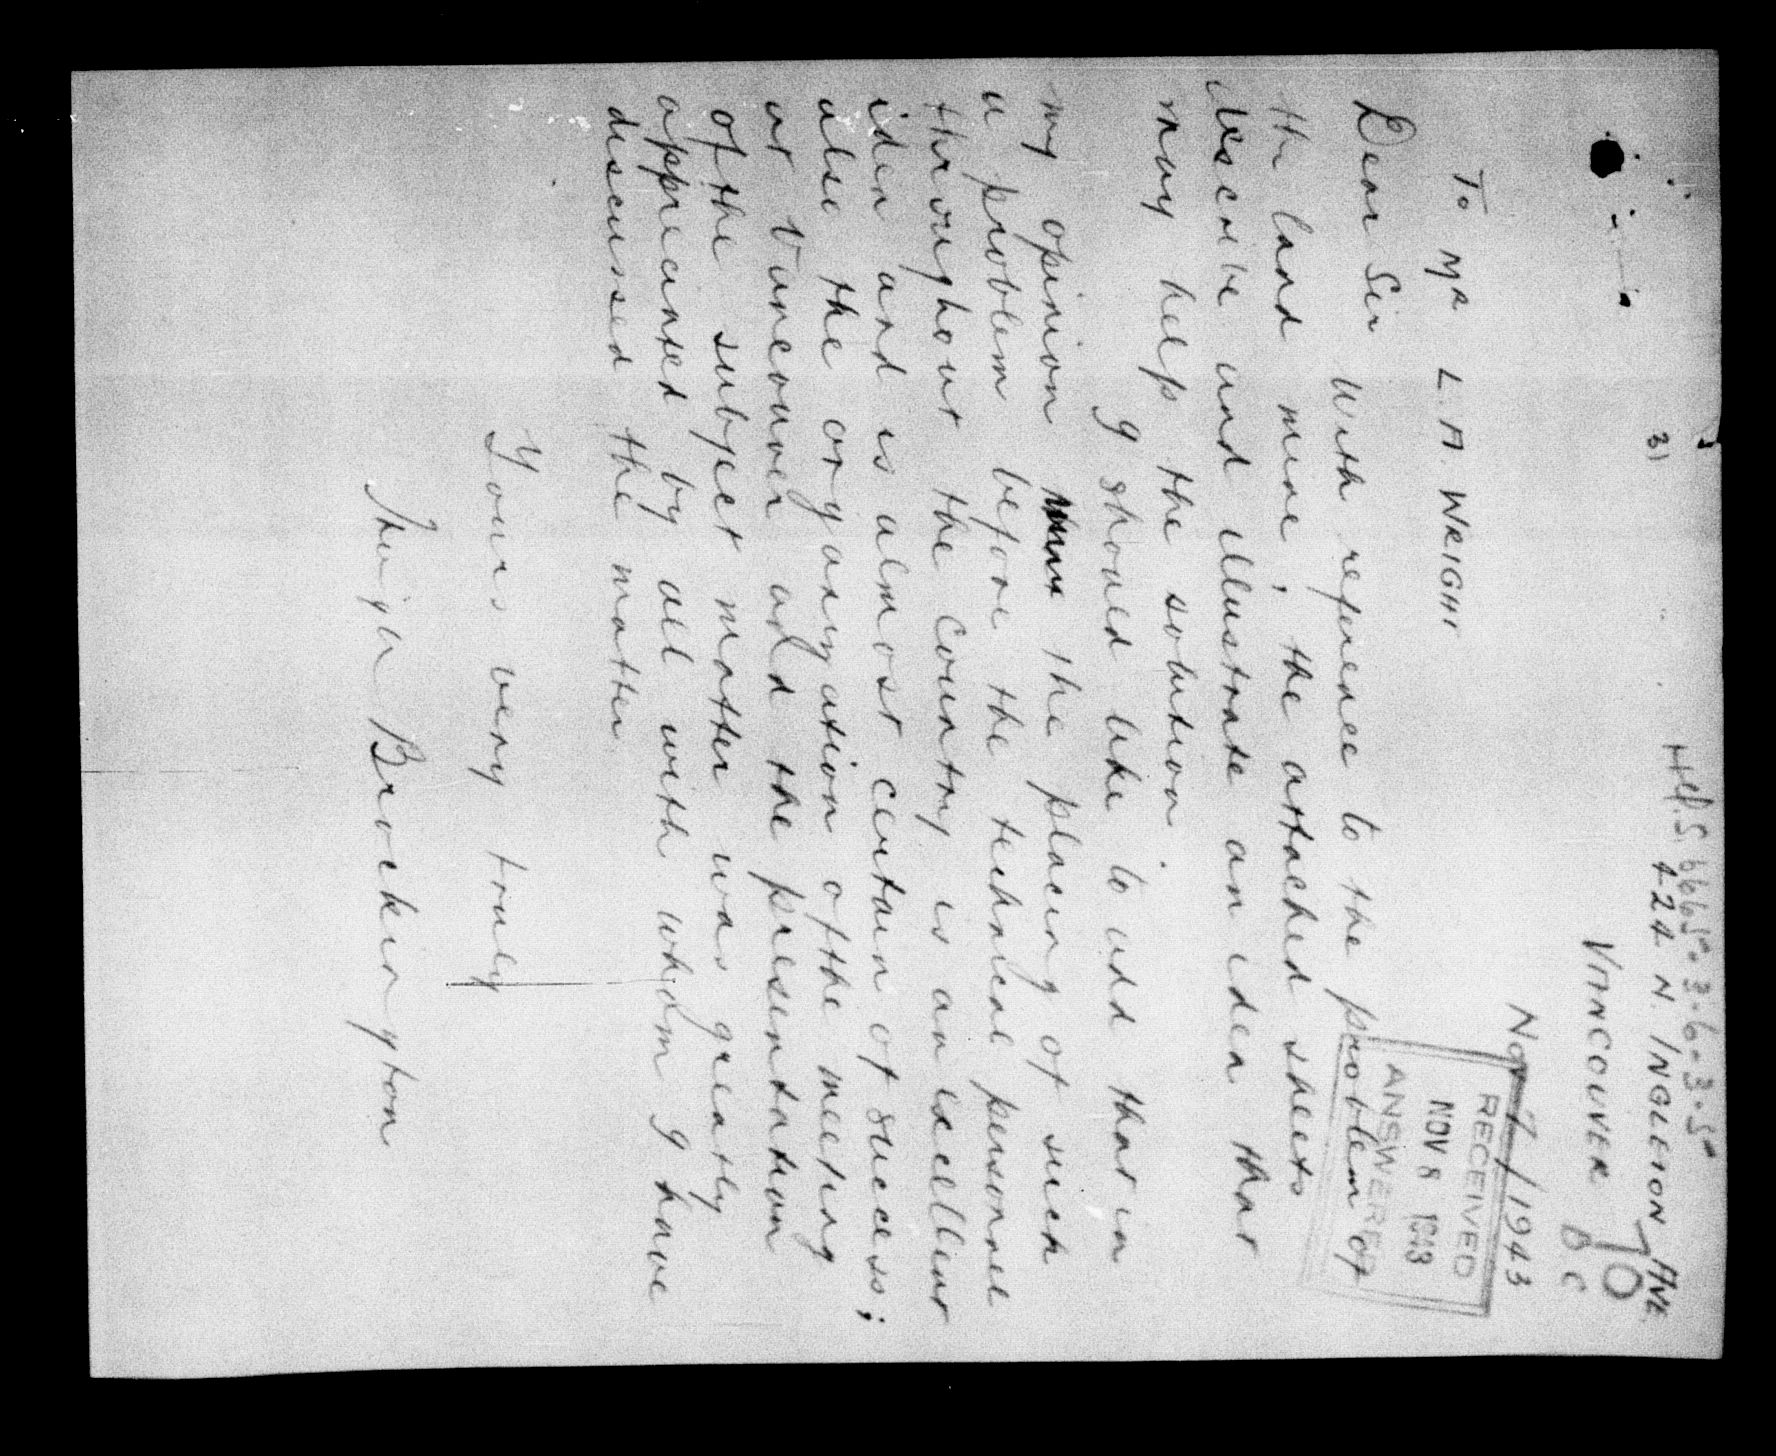 HQ.S. 6665-3-6-3-5
424 N. INGLETON AVE.
31
VANCOUVER B C
10
Nov 7/1943
RECEIVED
NOV 8 1943
ANSWERED
To Mr L. A. WRIGHT
Dear Sir With reference to the problem of
the land mine, the attached sheets
describe and illustrate an idea that
may help the solution.
I should like to add that in
my opinion the placing of such
a problem before the technical personnel
throughout the country is an excellent
idea and is almost certain of success;
also the organization of the meeting
at Vancouver and the presentation
of the subject matter was greatly
appreciated by all with whom I have
discussed the matter.
Yours very truly
Brockington